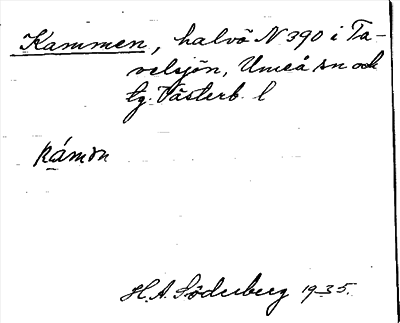 Kammen, halvö N 390 i Ta-
velsjön, Umeå sn och
tg. Västerb. l
kámɷn
H. A. Söderberg 1935.